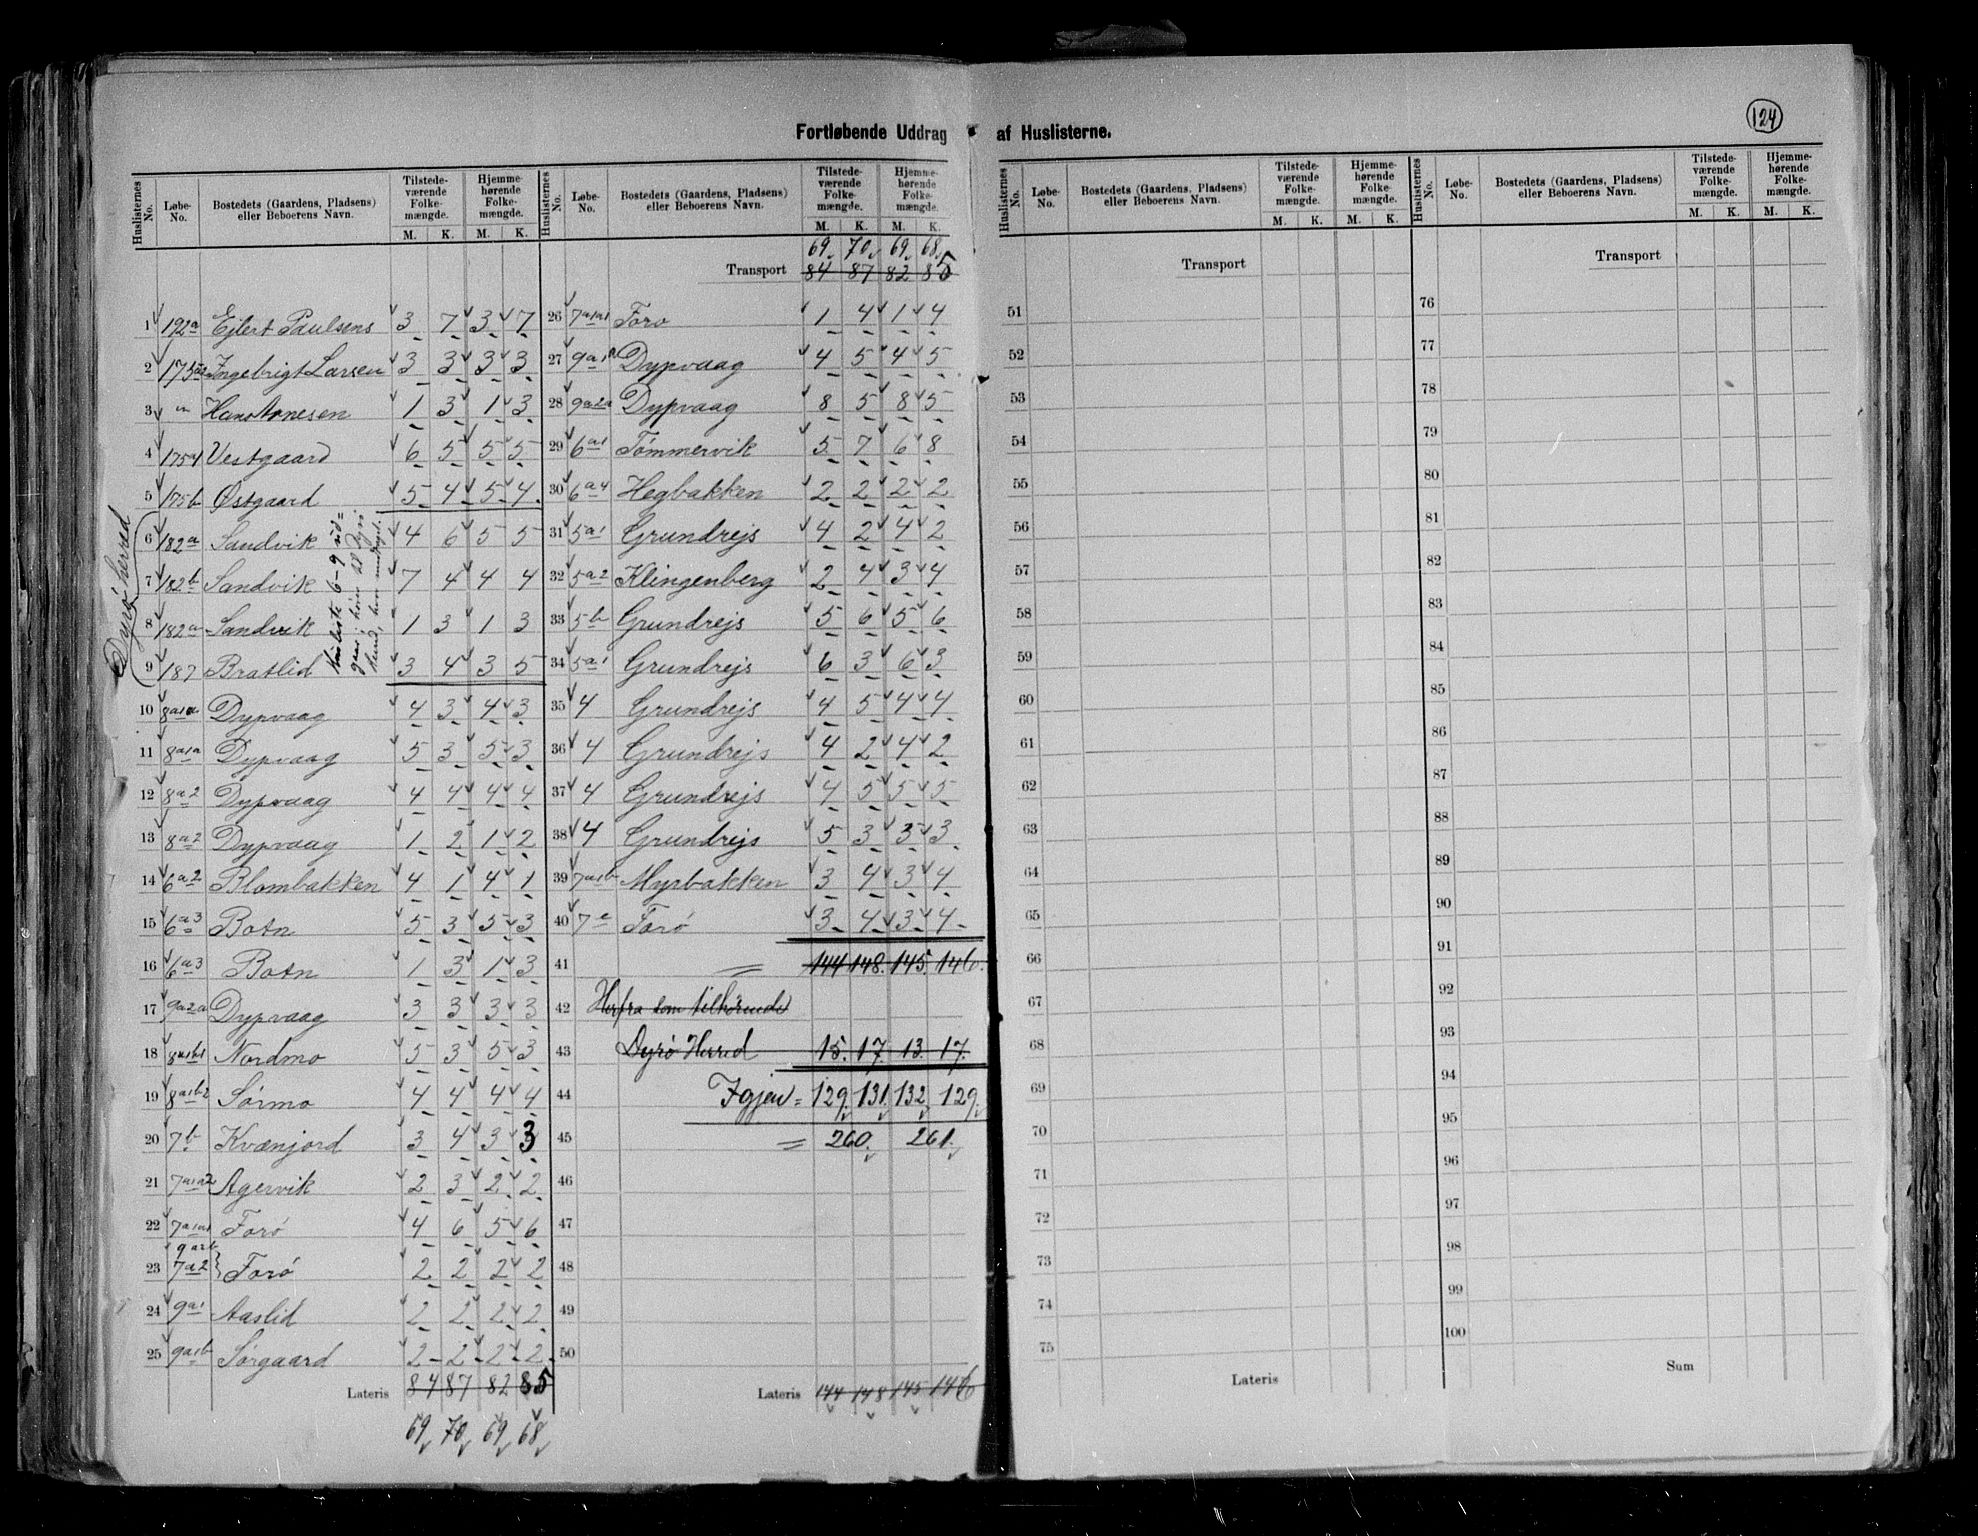 124
Fortløbende Uddrag af Huslisternes.
Huslisternes No. Løbe-No. Bostedets (Gaardens, Pladsens) eller Beboerens Navn. Tilstedeværende Folkemængde. M. K. Hjemmehørende Folkemængde. M. K.
1 192a Ejlert Paulsens 3 7 3 7
2 Ingebrigt Larsen 3 3 3 3
3 " Hans Anesen 1 3 1 3
4 Vestgaard 6 5 5 5
5 175b Østgaard 5 4 5 4
Dyrø herred
6 182a Sandvik 4 6 5 5
7 182b Sandvik 7 4 4 4
8 182a Sandvik 1 3 1 3
9 187 Bratlid 3 4 3 5
10 8a1a Dypvaag 4 3 4 3
11 8a1a Dypvaag 5 3 5 3
12 8a2 Dypvaag 4 4 4 4
13 8a2 Dypvaag 1 2 1 2
14 6a2 Blombakken 4 1 4 1
15 6a3 Botn 5 3 5 3
16 6a3 Botn 1 3 1 3
17 9a2a Dypvaag 3 3 3 3
18 8a1b1 Nordmo 5 3 5 3
19 8a1b2 Sørmo 4 4 4 4
20 7b Kvænjord 3 4 3 3
21 7a1a2 Agervik 2 3 2 2
22 7a1a1 Forø 4 6 5 6
23 7a2 Forø 2 2 2 2
24 9a1 Aaslid 2 2 2 2
25 9a1b Sørgaard 2 2 2 2
Lateris 84 87 82 85
69 70 69 68
Huslisternes No. Løbe-No. Bostedets (Gaardens, Pladsens) eller Beboerens Navn. Tilstedeværende Folkemængde. M. K. Hjemmehørende Folkemængde. M. K.
69 70 69 68
Transport 84 87 82 85
26 7a1a1 Forø 1 4 1 4
27 Dypvaag 4 5 4 5
28 9a2a Dypvaag 8 5 8 5
29 6a1 Tømmervik 5 7 6 8
30 6a4 Hegbakken 2 2 2 2
31 5a1 Grundrejs 4 2 4 2
32 5a2 Klingenberg 2 4 3 4
33 5b Grundrejs 5 6 5 6
34 5a1 Grundrejs 6 3 6 3
35 4 Grundrejs 4 5 4 4
36 4 Grundrejs 4 2 4 2
37 4 Grundrejs 4 5 5 5
38 4 Grundrejs 5 3 5 3
39 7a1b Myrbakken 3 4 3 4
40 Forø 3 4 3 4
41 = 144 148. 145. 146.
42 Herfra som tilhørende
43 Dyrø Herred 15. 17. 13. 17.
44 Igjen = 129. 131. 132. 129.
45 = 260. 261.
46
47
48
49
50
Lateris 144 148 145 146
Huslisternes No. Løbe-No. Bostedets (Gaardens, Pladsens) eller Beboerens Navn. Tilstedeværende Folkemængde. M. K. Hjemmehørende Folkemængde. M. K.
Transport
51
52
53
54
55
56
57
58
59
60
61
62
63
64
65
66
67
68
69
70
71
72
73
74
75
Lateris
Huslisternes No. Løbe-No. Bostedets (Gaardens, Pladsens) eller Beboerens Navn. Tilstedeværende Folkemængde. M. K. Hjemmehørende Folkemængde. M. K.
Transport
76
77
78
79
80
81
82
83
84
85
86
87
88
89
90
91
92
93
94
95
96
97
98
99
100
Sum